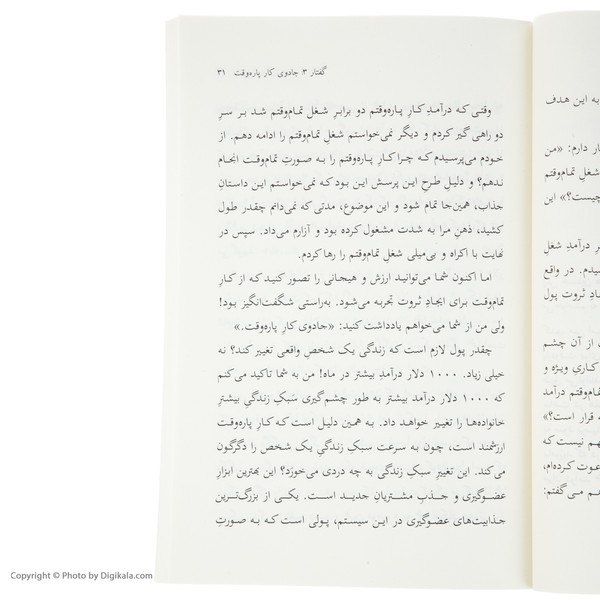 گفتار ۳: جادوی کار پاره‌وقت ۳۱
وقتی که درآمدِ کارِ پاره‌وقتم دو برابرِ شغل تمام‌وقتم شد بر سرِ
دو راهی گیر کردم و دیگر نمی‌خواستم شغلِ تمام‌وقتم را ادامه دهم. از
خودم می‌پرسیدم که چرا کارِ پاره‌وقتم را به صورتِ تمام‌وقت انجام
ندهم؟ و دلیلِ طرحِ این پرسش این بود که نمی‌خواستم این داستانِ
جذاب، همین‌جا تمام شود و این موضوع، مدتی که نمی‌دانم چقدر طول
کشید، ذهنِ مرا به شدت مشغول کرده بود و آزارم می‌داد. سپس در
نهایت با اکراه و بی‌میلی شغلِ تمام‌وقتم را رها کردم.
اما اکنون شما می‌توانید ارزش و هیجانی را تصور کنید که از کارِ
تمام‌وقت برای ایجادِ ثروت تجربه می‌شود. به‌راستی شگفت‌انگیز بود!
ولی من از شما می‌خواهم یادداشت کنید: «جادوی کارِ پاره‌وقت.»
چقدر پول لازم است که زندگی یک شخصِ واقعی تغییر کند؟ نه
خیلی زیاد. ۱۰۰۰ دلار درآمدِ بیشتر در ماه! من به شما تاکید می‌کنم
که ۱۰۰۰ دلار درآمد بیشتر به طور چشم‌گیری سَبکِ زندگیِ بیشترِ
خانواده‌ها را تغییر خواهد داد. به همین دلیل است که کارِ پاره‌وقت
ارزشمند است، چون به سرعت سبکِ زندگیِ یک شخص را دگرگون
می‌کند. این تغییرِ سبکِ زندگی به چه دردی می‌خورَد؟ این بهترین ابزارِ
عضوگیری و جذبِ مشتریانِ جدید است. یکی از بزرگ‌ترین
جذابیت‌های عضوگیری در این سیستم، پولی است که به صورتِ
به این هدف
ار دارم: «من
شغلِ تمام‌وقتم
چیست؟» این
درآمدِ شغلِ
سیدم. در واقع
ادِ ثروت پول
از آن چشم
کاریِ ویژه و
مام‌وقتم درآمد
قرار است؟»
هم نیست که
عوت کرده‌ام،
م می‌گفتم:
Copyright © Photo by Digikala.com